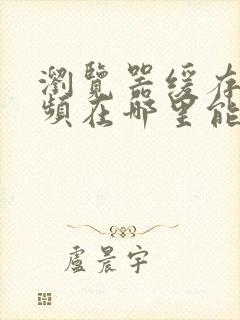 瀏覽器緩存
頻在哪里能
盧晨宇